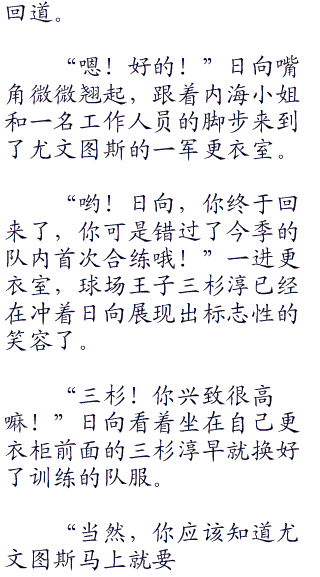 回道。
“嗯！好的！”日向嘴
角微微翘起，跟着内海小姐
和一名工作人员的脚步来到
了尤文图斯的一军更衣室。
“哟！日向，你终于回
来了，你可是错过了今季的
队内首次合练哦！”一进更
衣室，球场王子三杉淳已经
在冲着日向展现出标志性的
笑容了。
“三杉！你兴致很高
嘛！”日向看着坐在自己更
衣柜前面的三杉淳早就换好
了训练的队服。
“当然，你应该知道尤
文图斯马上就要